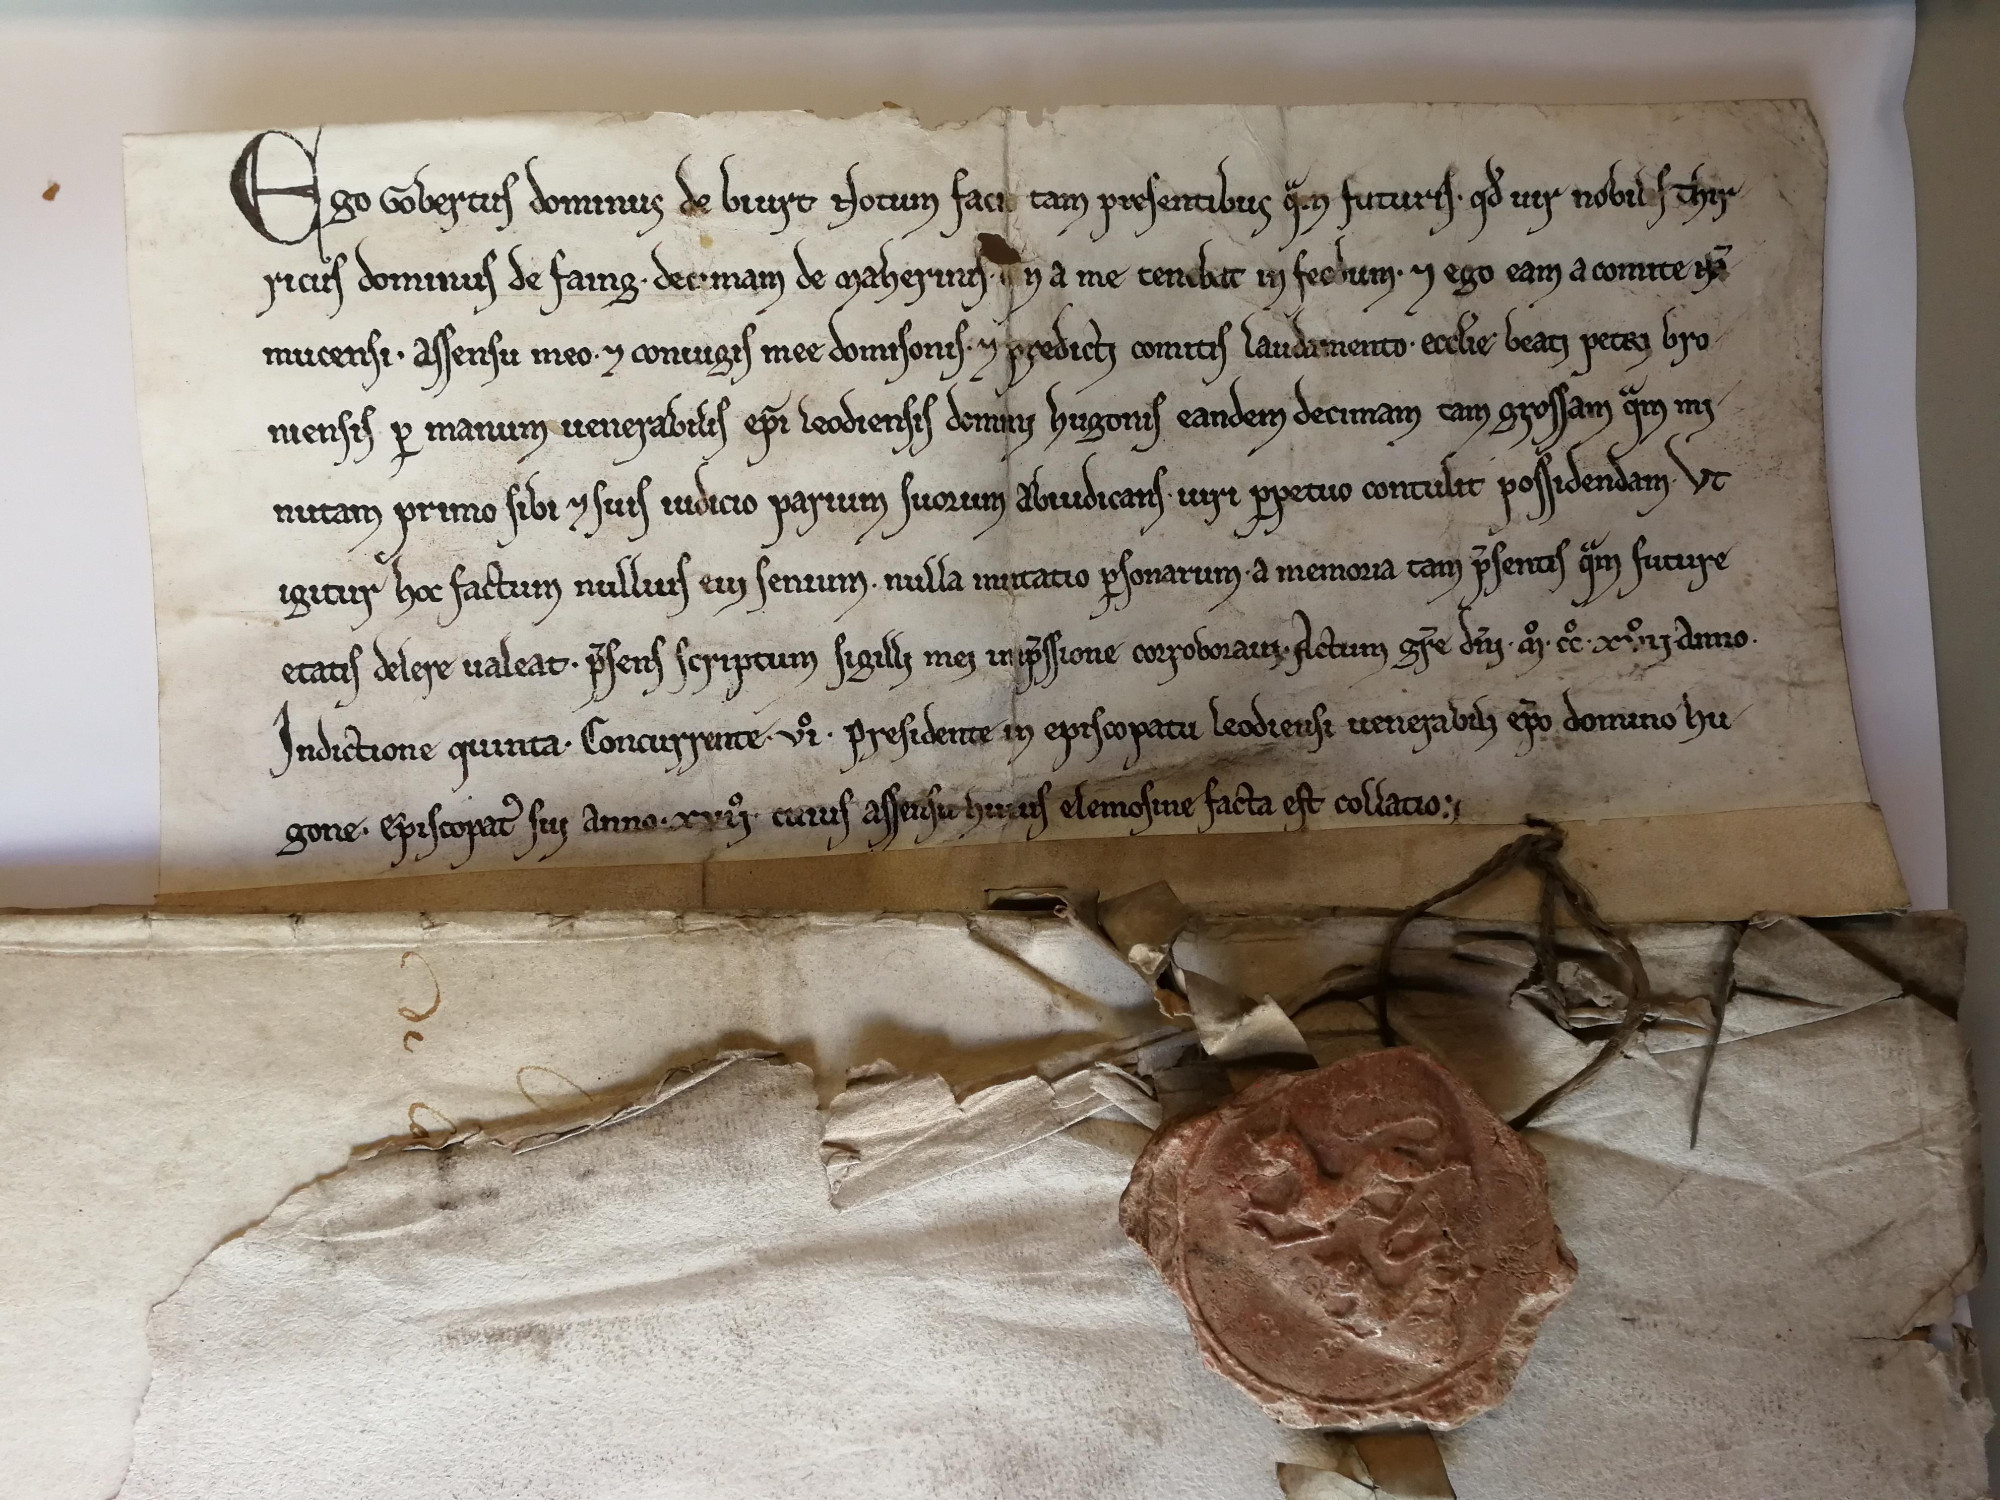 Ego Gobertus dominus de biurt Notum faci tam presentibus qam futuris. qd uir nobilis thir
ricus dominus de faing. decimam de maherinis. a me tenebat in feodum. ⁊ ego eam a comite
mucensi. Assensu meo. ⁊ coniugis mee domisonis. ⁊ predicti comitis laudamento. ecclie beati petri bro
niensis p manum uenerabilis epi leodiensis domini hugonis eandem decimam tam grossam qam mi
nutam primo sibi ⁊ suis iudicio parium suorum abiudicans. iure ppetuo contulit possidendam. Ut
igitur hoc factum nullius eui senium. nulla mutatio psonarum. a memoria tam psentis qam future
etatis delere ualeat. psens scriptum sigilli mei inpssione corroboraui. Actum gre dni. mo. cco. xvoii. Anno.
Indictione quinta. Concurrente. voi. Presidente in episcopatu leodiensi uenerabili epo domino hu
gone. Episcopat sui anno. xvoii. cuius assensu huius elemosine facta est collatio.